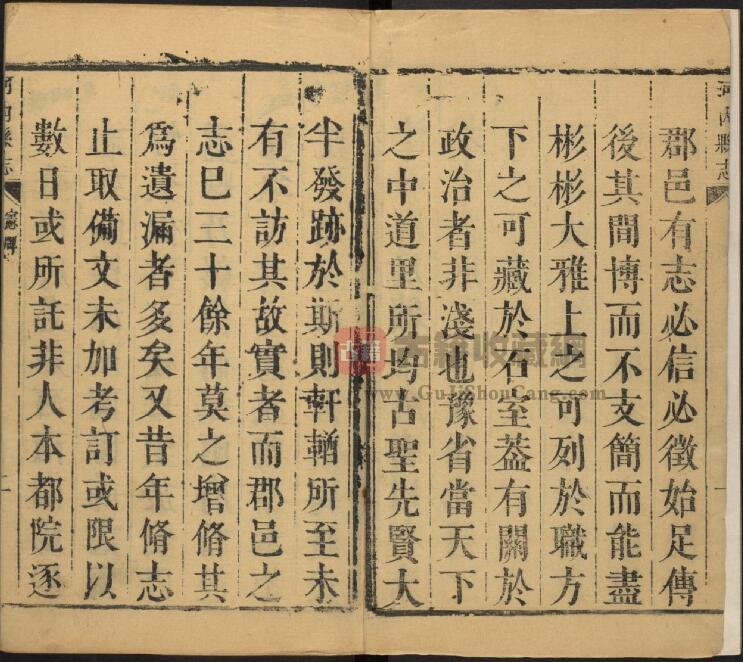 河內縣志
郡邑有志必信必徵始足傳
後其間博而不支簡而能盡
彬彬大雅上之可列於職方
下之可藏於石室葢有關於
政治者非淺也豫省當天下
之中道里所均古聖先賢大
半發跡於斯則軒輶所至未
有不訪其故實者而郡邑之
志已三十餘年莫之增脩其
爲遺漏者多矣又昔年脩志
止取備文未加考訂或限以
數日或所託非人本都院逐
河內縣志
一
一
古籍
古籍收藏網
www.GuJiShouCang.com